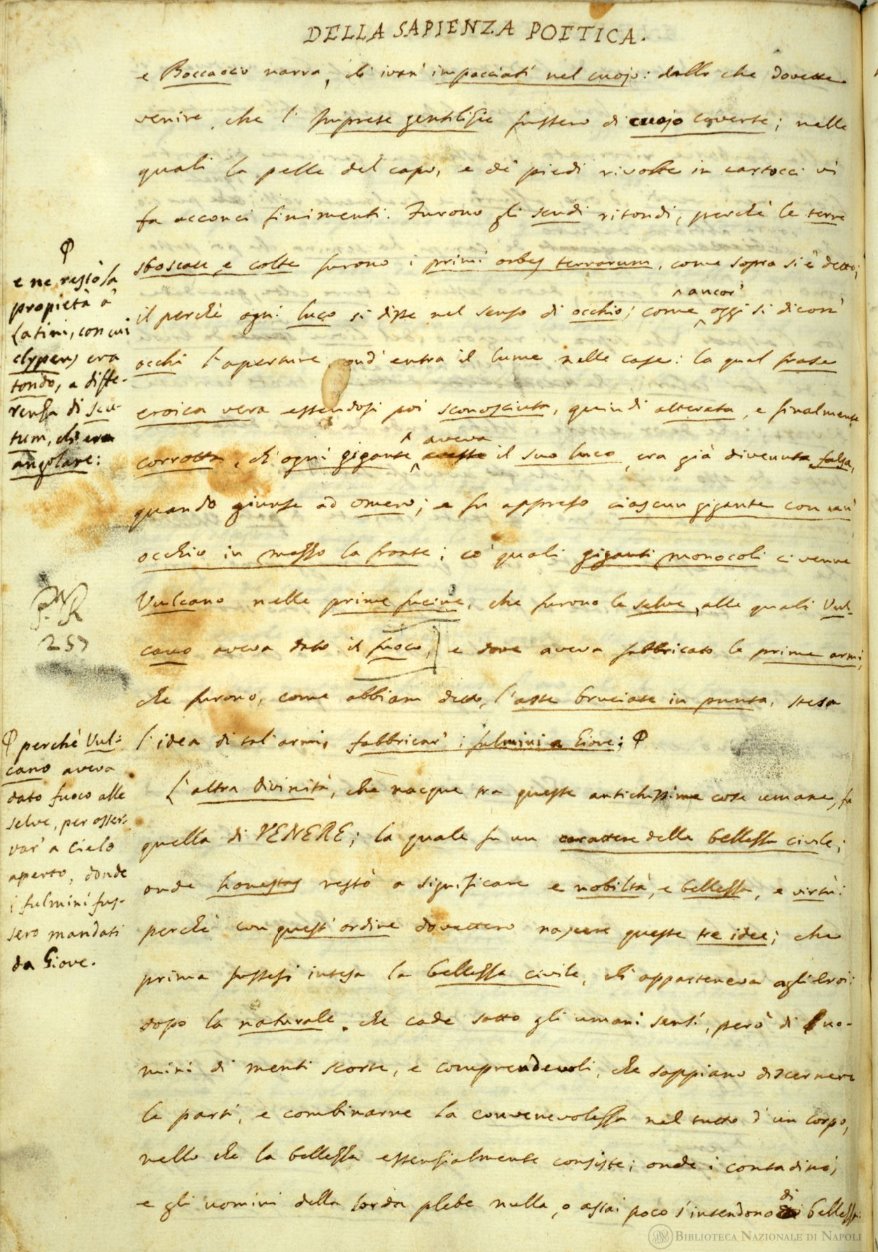 DELLA SAPIENZA POETICA.
e Boccaccio narra, ch'ivan' impacciati nel cuojo: dallo che dovette
venire, che l'Imprese gentilizie fussero di cuojo coverte; nelle
quali la pelle del capo, e de' piedi rivolte in cartocci vi
fa acconci finimenti. Furono gli scudi ritondi, perchè le terre
sboscate, e colte furono i primi orbes terrarum, come sopra si è detto;
e ne restò la
propietà a'
Latini, con cui
clypeus era
tondo, a diffe-
renza di scu-
tum, ch'era
angolare:
il perchè ogni luco si disse nel senso di occhio; come ancor' oggi si dicon'
occhi l'aperture, ond' entra il lume nelle case: la qual frase
eroica vera essendosi poi sconosciuta, quindi alterata, e finalmente
corrotta, ch'ogni gigante aveva il suo luco, era già divenuta falsa,
quando giunse ad Omero; e fu appreso ciascun gigante con un'
occhio in mezzo la fronte; co' quali giganti monocoli ci venne
Vulcano nelle prime fucine, che furono le selve, alle quali Vul-
257
cano aveva dato il fuoco, e dove aveva fabbricato le prime armi,
che furono, come abbiam detto, l'aste bruciate in punta, stesa
l'idea di tal' armi, fabbricar' i fulmini a Giove;
perchè Vul-
cano aveva
dato fuoco alle
selve, per osser-
var' a cielo
aperto, donde
i fulmini fus-
sero mandati
da Giove.
L'altra divinità, che nacque tra queste antichissime cose umane, fu
quella di VENERE; la quale fu un carattere della bellezza civile;
onde honestas restò a significare e nobiltà, e bellezza, e virtù:
perchè con quest' ordine dovettero nascere queste tre idee; che
prima fussesi intesa la bellezza civile, ch'apparteneva agli Eroi:
dopo la naturale, che cade sotto gli umani sensi, però di uo-
mini di menti scorte, e comprendevoli, che sappiano discernere
le parti, e combinarne la convenevolezza nel tutto d'un corpo,
nello che la bellezza essenzialmente consiste; onde i contadini,
e gli uomini della lorda plebe nulla, o assai poco s'intendono di bellezza
BIBLIOTECA NAZIONALE DI NAPOLI